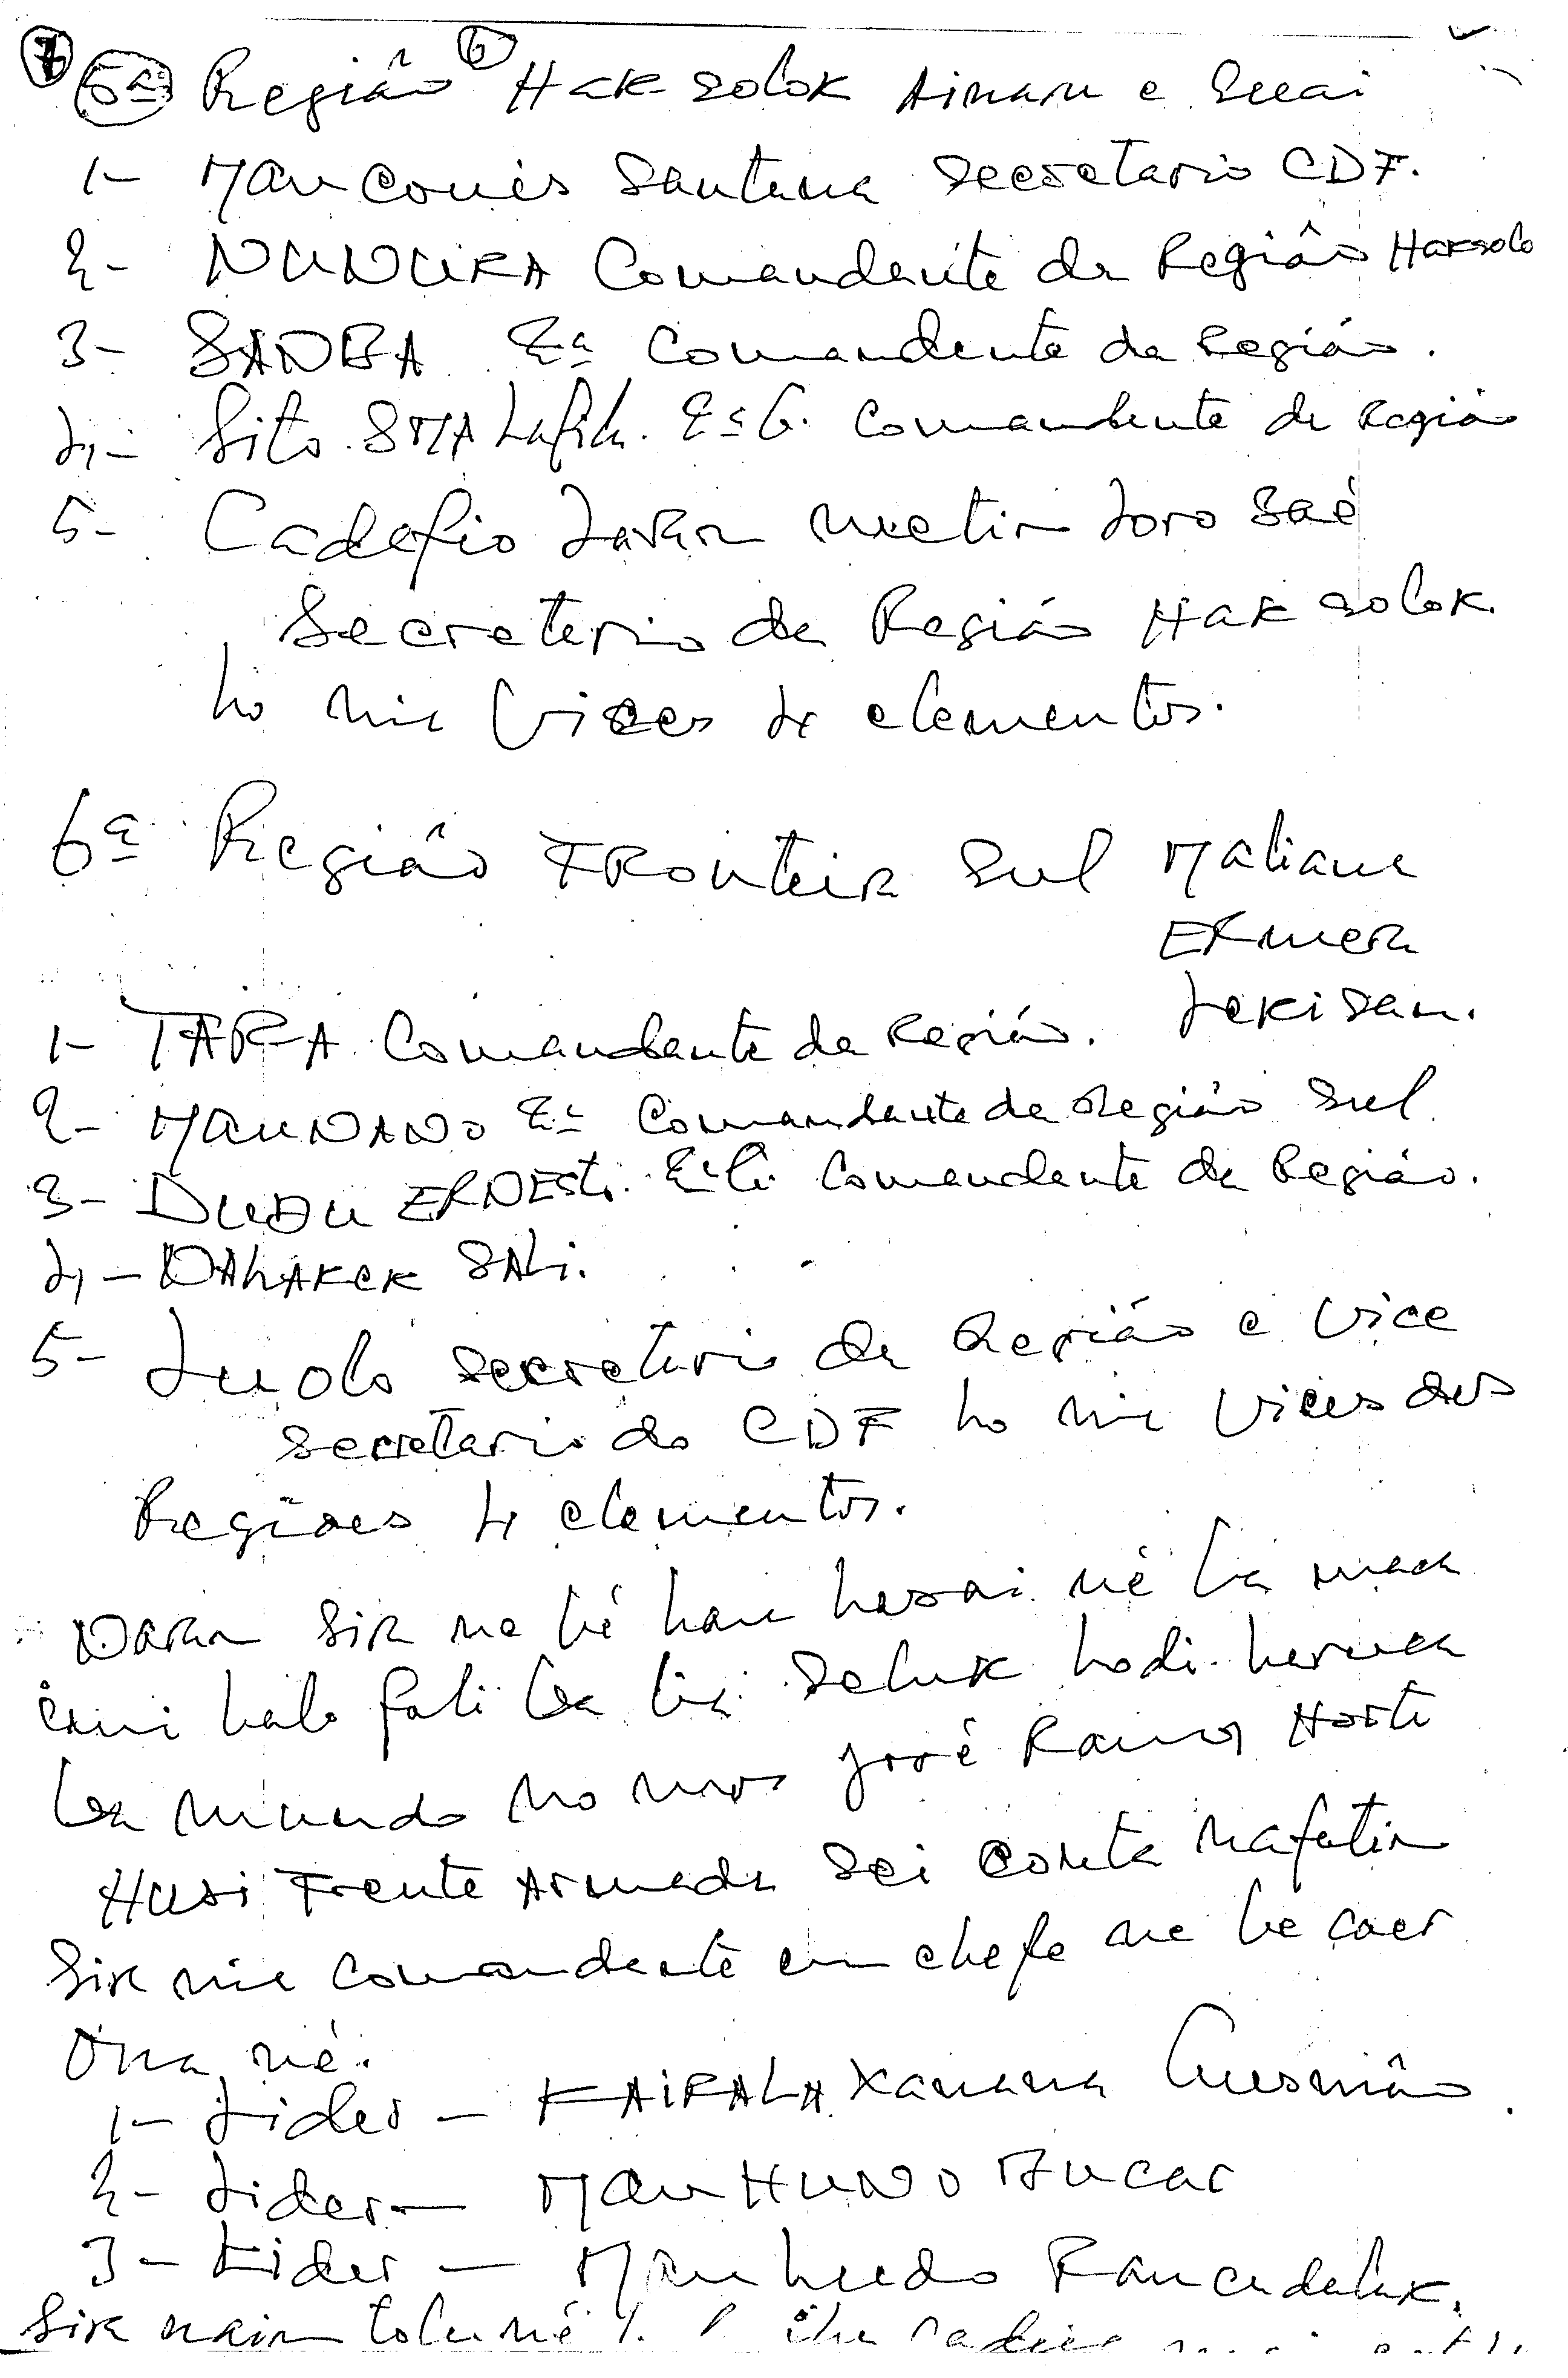 7 5ª Região 6 Hak solok Ainaru e Suai
1- Mau Couis Santana Secretario CDF.
2- NUNURA Comandante da Região Haksolo
3- SANBA 2ª Comandante da Região.
4- Sito. 2º C. Comandante da Região
5- metin Loro Saé
Secretario da Região Hak solok.
ho nia Vices 4 elementos.
6ª Região FRonteira Sul Maliana
ERmera
Lekisan.
1- TARA Comandante da Região.
2- MAUNANO 2º Comandante da Região Sul.
3- DUDU ERNESto. 2º C. Comandante da Região.
4- DAHAKEK SAhi.
5- Luolo secretario da Região e Vice
Secretario do CDF ho nia Vices das
Regiães 4 elementos.
Naran Sira ne bé hau hasai né ba maca
hato fali ba bá Seluk hodi haruca
ba mundo no mos José Ramos Horta
Husi Frente Armada sei conta nafatin
Sira nia comandante em chefe ne be caer
Ona, né.
1- Lider - KAiRALA Xanana Gusmão.
2- Lider - MAU HUNO BUCAR
3- Lider - Mau hudo Rancadalak.
Sira nain tolu né